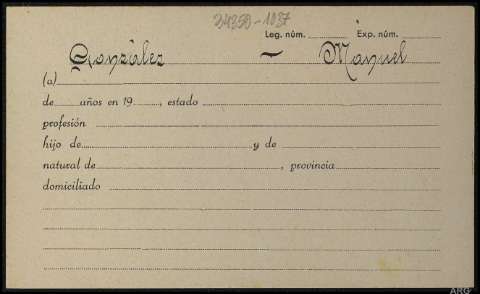 24350-1037
Leg. núm. Exp. núm.
González — Manuel
(a)
de años en 19 , estado
profesión
hijo de y de
natural de , provincia
domiciliado
ARG